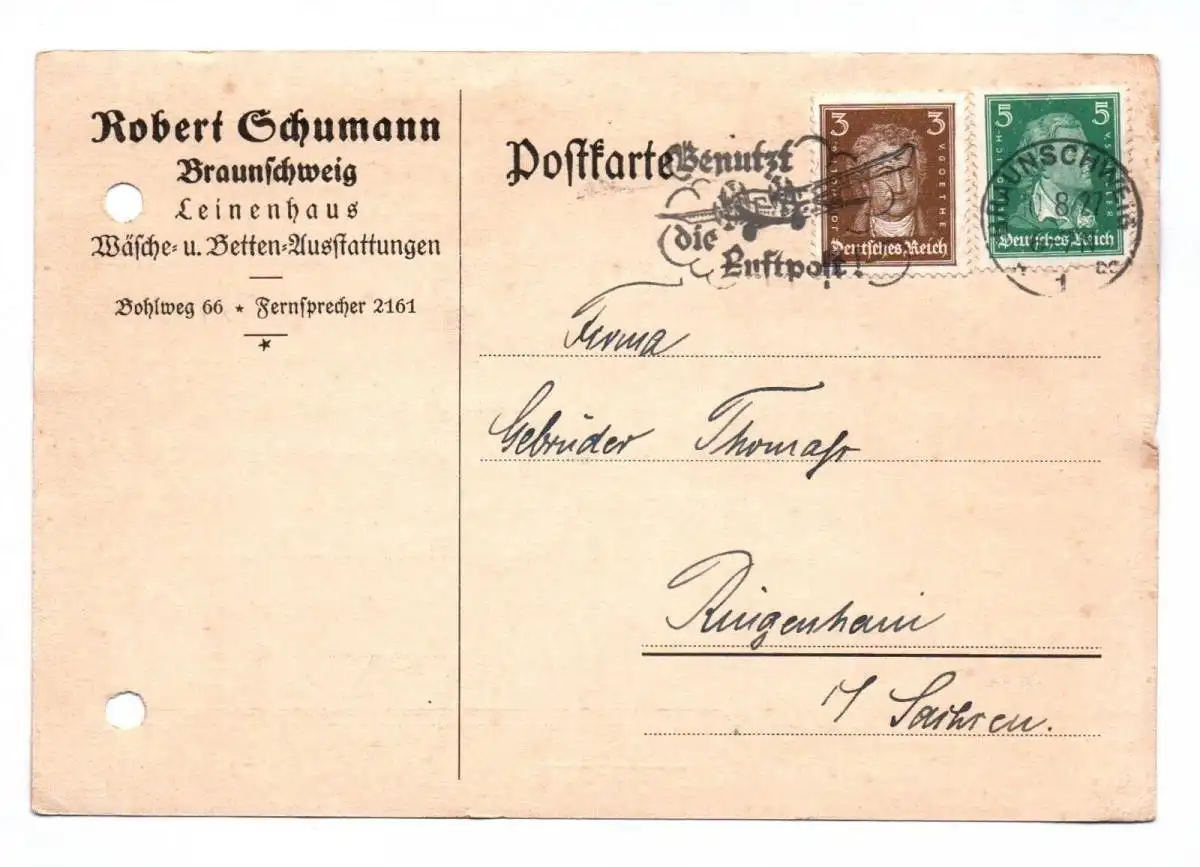 Robert Schumann
Braunschweig
Leinenhaus
Wäsche- u. Betten-Ausstattungen
Bohlweg 66 ★ Fernsprecher 2161
Postkarte
Benutzt
die
Luftpost!
3 3
VGOETHE
Deutsches Reich
5 5
Deutsches Reich
BRAUNSCHWEIG
8.27
1
Firma
Gebrüder Thomas
Ringenhain
i/ Sachsen.